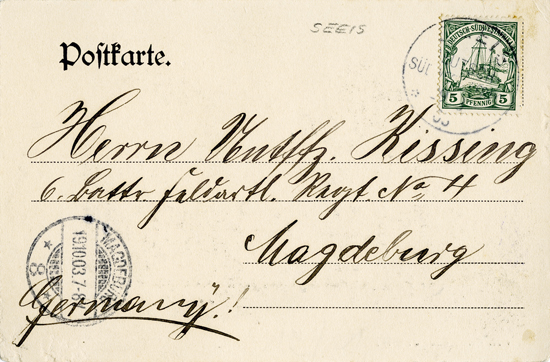 SEEIS
Postkarte.
DEUTSCH-SÜDWESTAFRIKA
5 PFENNIG 5
SÜD
03
Herrn Untffz. Kissing
6. Battr. Feldartl. Regt. No 4
Magdeburg
Germany.!
MAGDEBURG
19.10.03.7-8
* 8 *